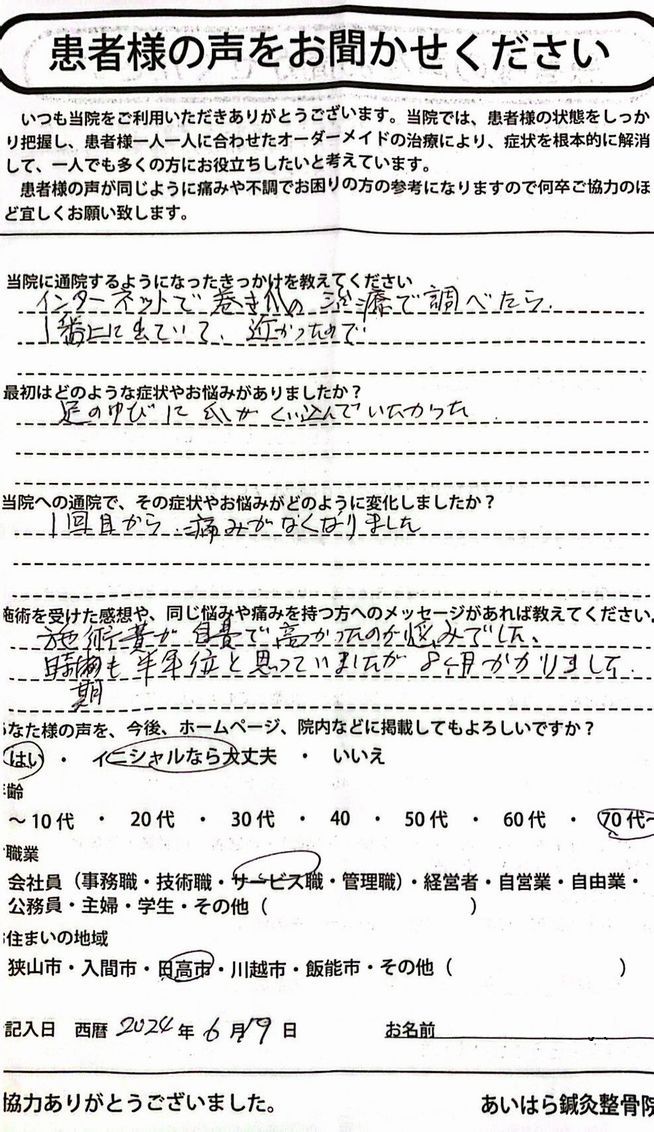 患者様の声をお聞かせください
いつも当院をご利用いただきありがとうございます。当院では、患者様の状態をしっか
り把握し、患者様一人一人に合わせたオーダーメイドの治療により、症状を根本的に解消
して、一人でも多くの方にお役立ちしたいと考えています。
患者様の声が同じように痛みや不調でお困りの方の参考になりますので何卒ご協力のほ
ど宜しくお願い致します。
当院に通院するようになったきっかけを教えてください
インターネットで巻き爪の治療で調べたら、
1番上に出ていて、近かったので
最初はどのような症状やお悩みがありましたか?
足のゆびに爪がくい込んでいたかった
当院への通院で、その症状やお悩みがどのように変化しましたか?
1回目から痛みがなくなりました
施術を受けた感想や、同じ悩みや痛みを持つ方へのメッセージがあれば教えてください。
施術費が自費で高かったのが悩みでした、
時期も半年位と思っていましたが8ヶ月かかりました。
あなた様の声を、今後、ホームページ、院内などに掲載してもよろしいですか?
はい ・ イニシャルなら大丈夫 ・ いいえ
年齢
~10代 ・ 20代 ・ 30代 ・ 40 ・ 50代 ・ 60代 ・ 70代~
職業
会社員(事務職・技術職・サービス職・管理職)・経営者・自営業・自由業・
公務員・主婦・学生・その他( )
お住まいの地域
狭山市・入間市・日高市・川越市・飯能市・その他( )
記入日 西暦 2024年 6月19日 お名前
協力ありがとうございました。 あいはら鍼灸整骨院